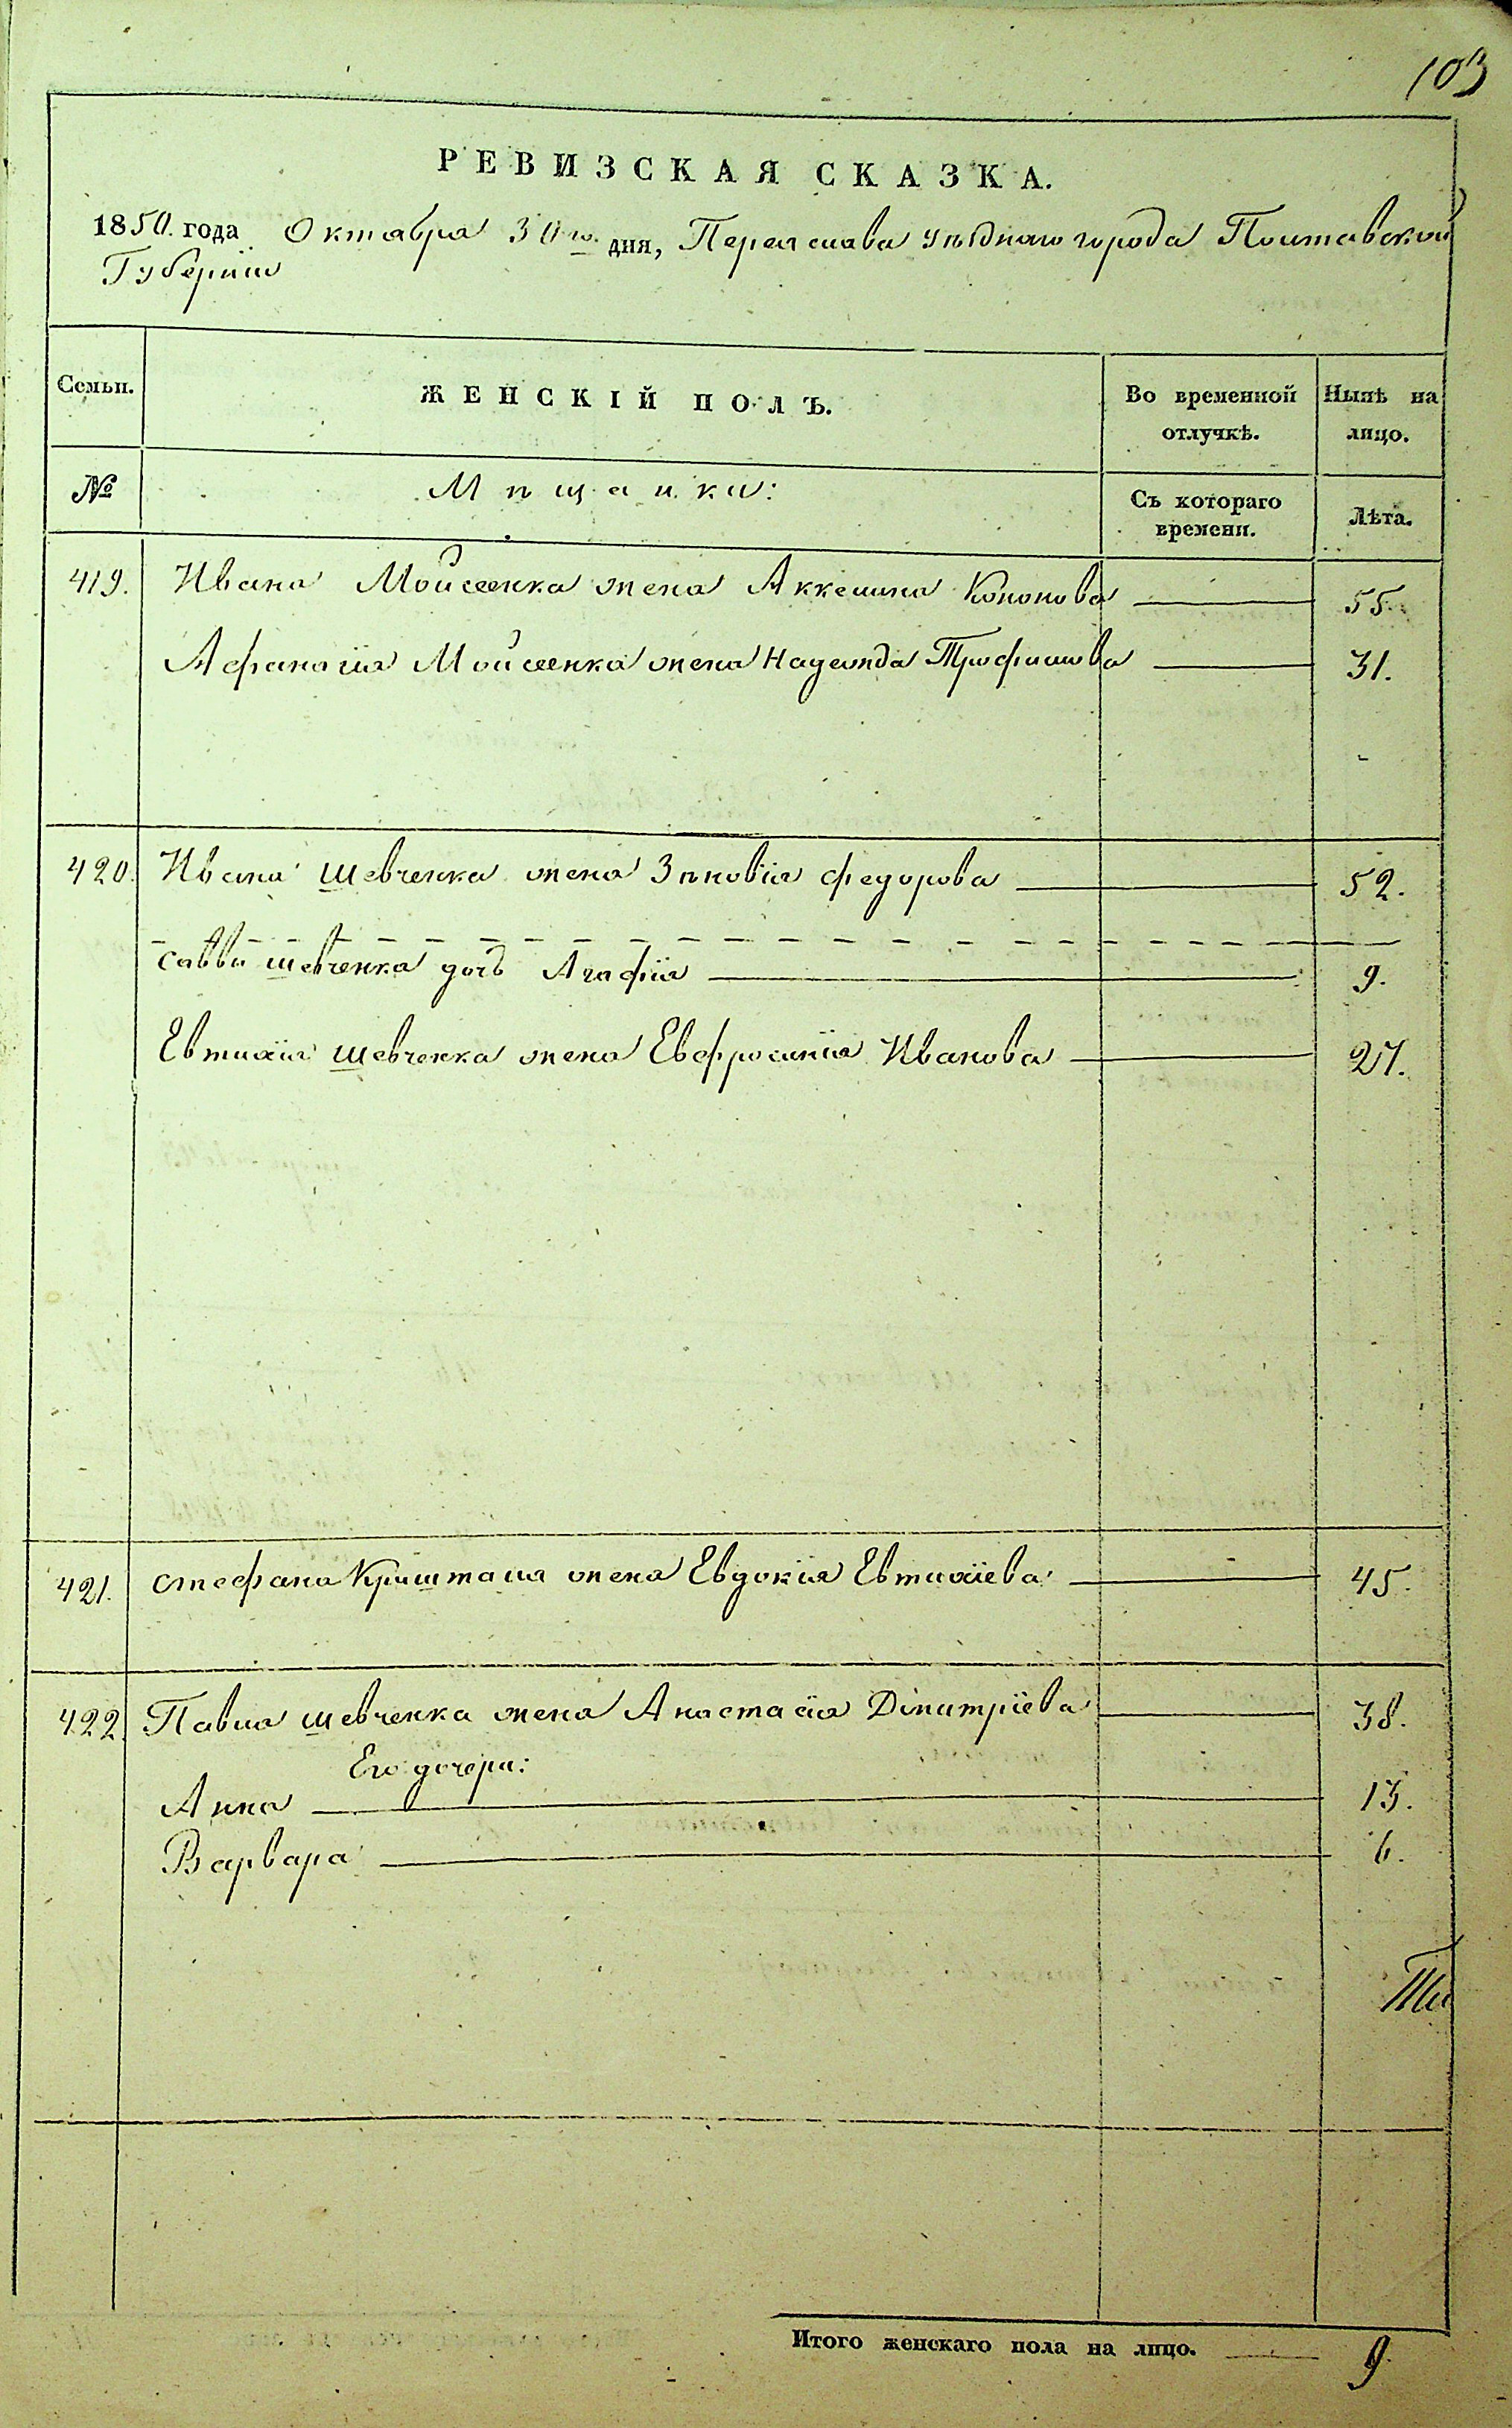 103
РЕВИЗСКАЯ СКАЗКА.
1850. года Октября 30го. дня, Переяслава уѣзднаго города Полтавской
Губерніи
Семьи.
ЖЕНСКІЙ ПОЛЪ.
Во временной отлучкѣ.
Нынѣ на лицо.
№
Мѣщанки:
Съ котораго времени.
Лѣта.
419. Ивана Мойсеенка жена Аккелина Кононова 55.
Афанасія Мойсеенка жена Надежда Трофимова 31.
420. Ивана Шевченка жена Зѣновія Федорова 52.
Саввы Шевченка дочь Агафія 9.
Евтихія Шевченка жена Евфросинія Иванова 27.
421. Стефана Кришталя жена Евдокія Евтихіева 45.
422. Павла Шевченка жена Анастасія Дімитріева 38.
Его дочери:
Анна 13.
Варвара 6.
Итого женскаго пола на лицо. 9